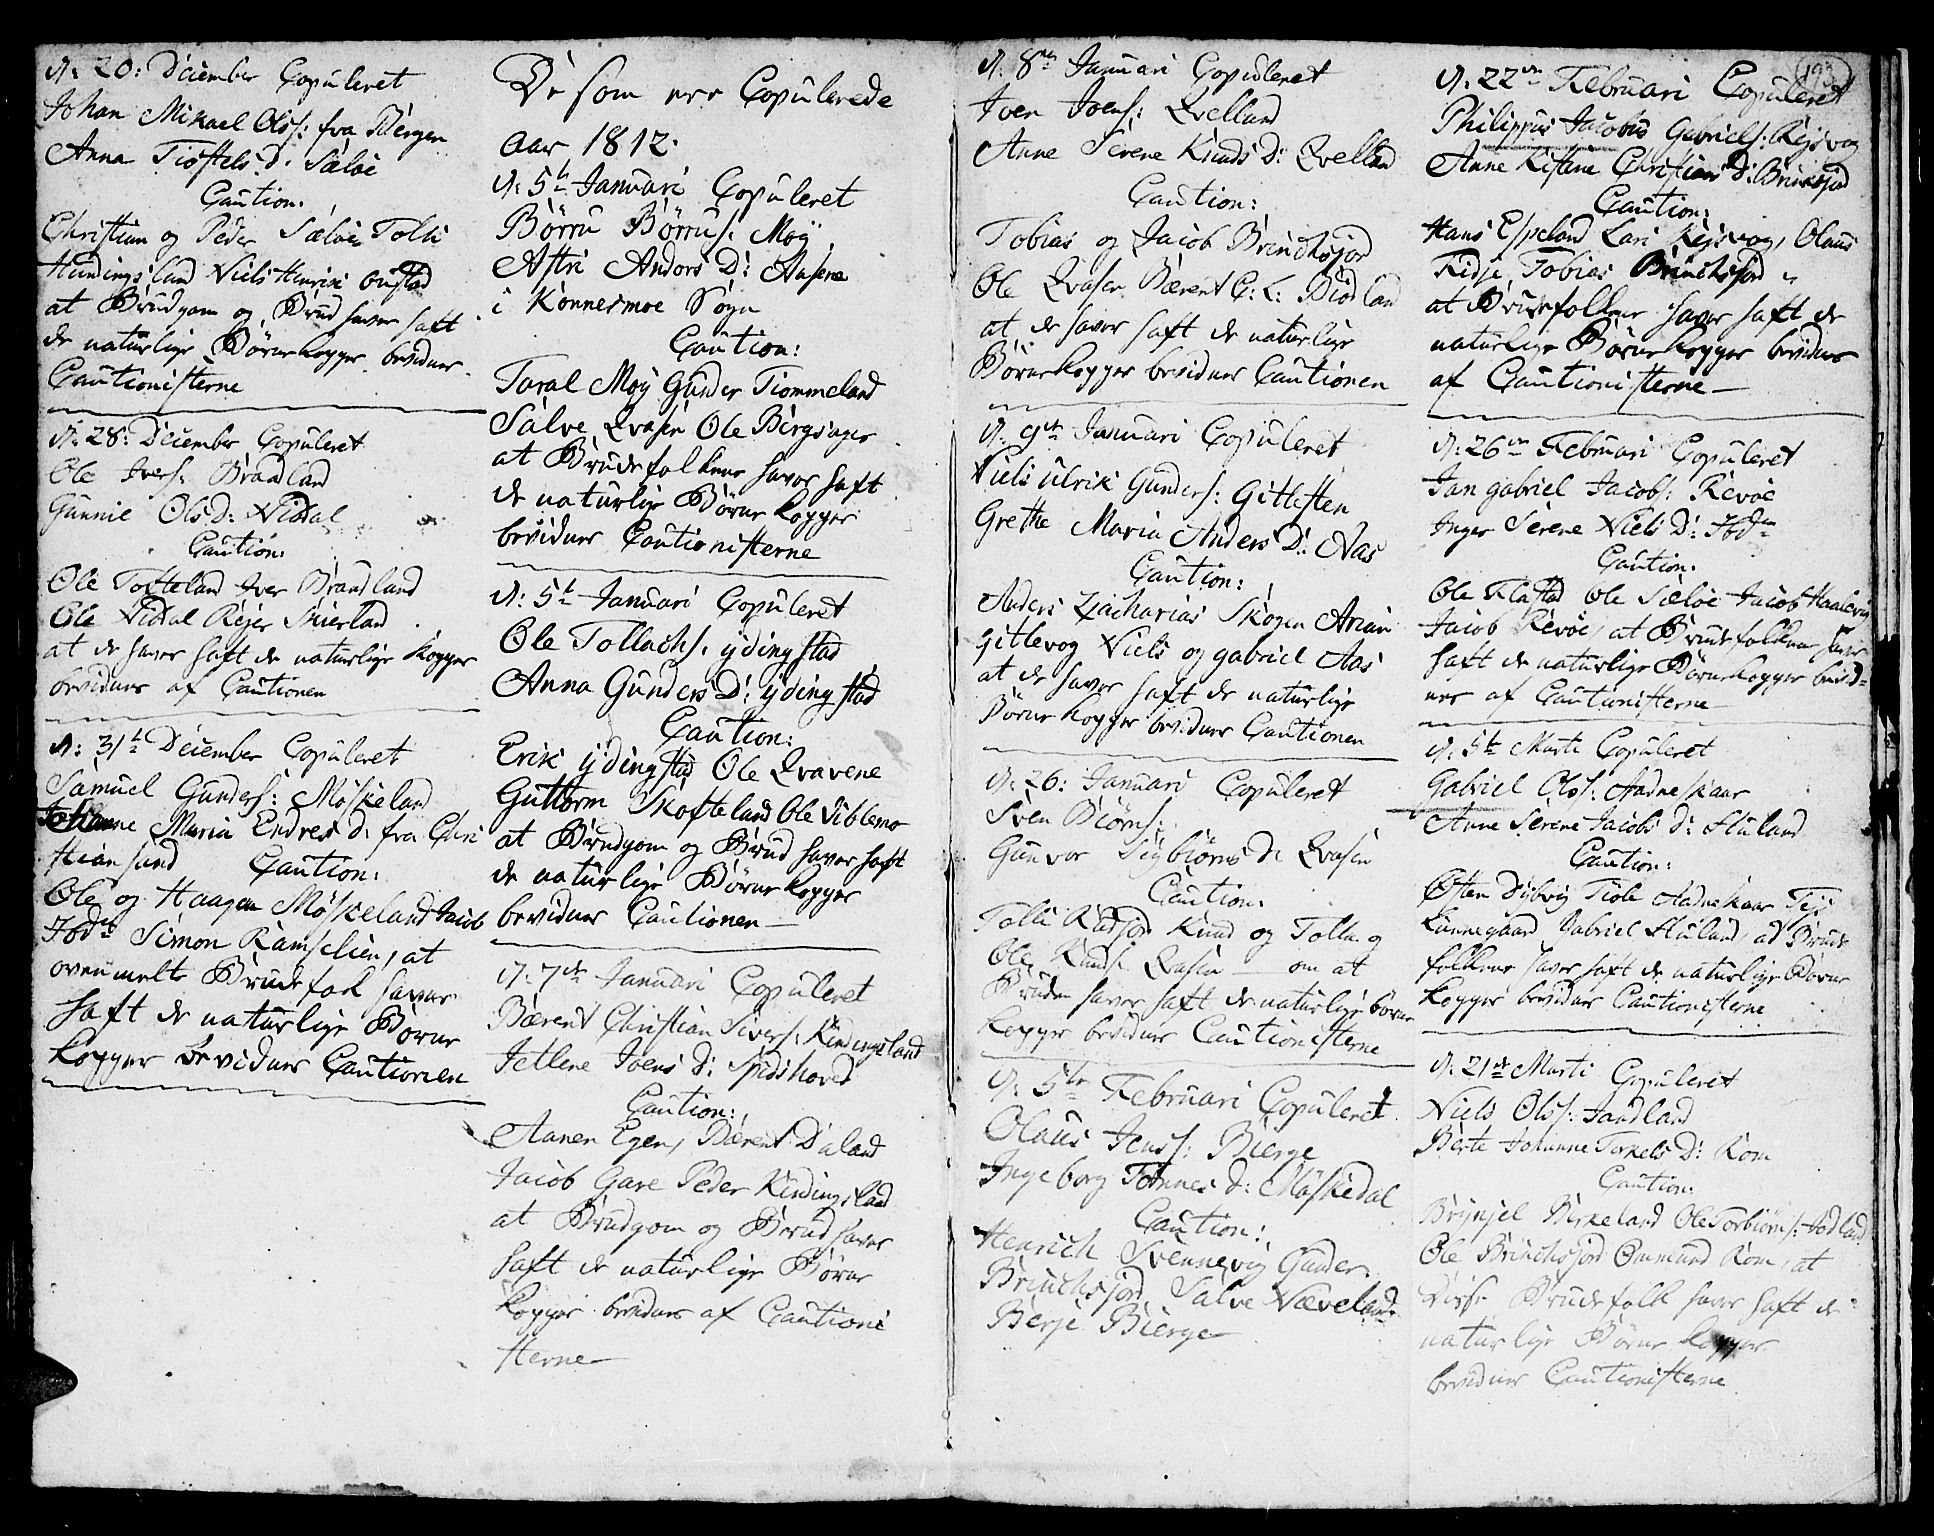 d: 20: December Copuleret
Johan Mikael Ols: fra Bergen
Anna Tiøstels d: Sæløe
Caution:
Christian og Peder Sæløe Tolli
Hundingsland Niels Henrik
at Brudgom og Brud haver haft
de naturlige Børnekopper bevidner
Cautionisterne
d: 28: December Copuleret
Ole Ivers: Brandland
Gunnil Ols D: Niddal
Caution:
Ole Tofteland Iver Brandland
Ole Niddal Rejer Skierland
at de haver haft de naturlige Kopper
bevidnes af Cautionen
d: 31t December Copuleret
Samuel Gunders: Møskeland
Johanne Maria Endres d: fra Chri
stiansund Caution:
Ole og Haagen Møskeland Jacob
Simon Ramslien, at
ovenmelte Brudefolk haver
haft de naturlige Børne
kopper bevidner Cautionen
De som ere Copulerede
Aar 1812.
d: 5t Januari Copuleret
Børru Børrus: Møÿ
Astri Andors D: Aasene
i Konnesmoe Sogn
Caution:
Taral Møÿ Gunder Tiommeland
Salve Qvasen Ole Bergsager
at Brudefolkene haver haft
de naturlige Børne kopper
bevidner Cautionisterne
d: 5t Januari Copuleret
Ole Tollachs: ÿdingstad
Anna Gunders D: ÿdingstad
Caution:
Erik ÿdingstad Ole Qvavene
Guttorm Skofteland Ole Viblemo
at Brudgom og Brud haver haft
de naturlige Børnekopper
bevidner Cautionen
d: 7de Januari Copuleret
Bærent Christian Sivers: Kindingsland
Jellene Joens D: Spidshoved
Caution:
Aanen Egen, Bærent Daland
Jacob Gare Peder Kindingsland
at Brudgom og Brud haver
haft de naturlige Børne
kopper bevidnes af Cautioni
sterne
193
d: 8de Januari Copuleret
Joen Joens: Qvelland
Anne Serene Knuds D: Qvelland
Caution:
Tobias og Jacob Brinchsjord
Ole Qvasen Bærent C: L: Biodland
at de haver haft de naturlige
Børnekopper bevidner Cautionen
d: 9de Januari Copuleret
Niels Ulrik Gunders: Gitlesten
Grethe Maria Anders D: Aas
Caution:
Anders Zacharias Skogen Arian
Gitlevog Niels og Gabriel Aas
at de haver haft de naturlige
Børne kopper bevidner Cautionen
d: 26: Januari Copuleret
Sven Biørns:
Gunvor Sigbiørns D: Qvasen
Caution:
Tolli Knud og Tolla
Ole Knuds: Qvasen om at
Bruden haver haft de naturlige børne
kopper bevidner Cautionisterne
d: 5te Februari Copuleret
Olaus Jenss: Bierge
Ingeborg Tønnes D: Møskedal
Caution:
Henrich Svennevig Gunder
Brinchsjord Salve Næveland
Berje Bierge
d: 22de Februari Copuleret
Philippus Jacobus Gabriels: Rejsvog
Anne Kistine Christians D: Brinksjord
Caution:
Hans Espeland Lars Rejsvog, Olaus
Kidje Tobias Brinchsjord
at Brudefolkene haver haft de
naturlige Børnekopper bevidnes
af Cautionisterne
d: 26de Februari Copuleret
Jan Gabriel Jacobs: Revøe
Inger Serene Niels D:
Caution:
Ole Flastad Ole Sæløe Jacob
Jacob Revøe, at Brudefolkene haver
haft de naturlige Børnekopper bevid=
nes af Cautionisterne
d: 5te Marti Copuleret
Gabriel Ols: Aadneskaar
Anne Serene Jacobs D: Huland
Caution:
Østen Dybvig Tiøl Aadneskaar
Gabriel Huland, at Brude
folkene haver haft de naturlige Børne
kopper bevidner Cautionisterne
d: 21de Marti Copuleret
Niels Ols: Jaadland
Berte Johanne Torkels D: Rom
Caution:
Brynjel Birkeland Ole Torbiørns: Jodland
Ole Brinchsjord Ommund Rom, at
disse Brudefolk haver haft de
naturlige Børne kopper
bevidner Cautionisterne